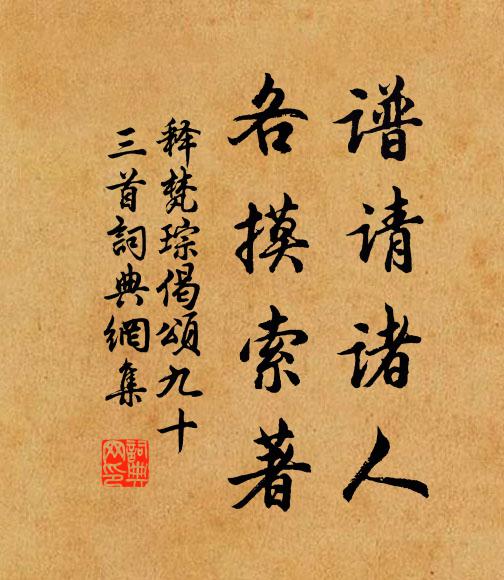 谱请诸人
各摸索著
释梵琮偈頌九十
三首詞典網集
詞典
网印